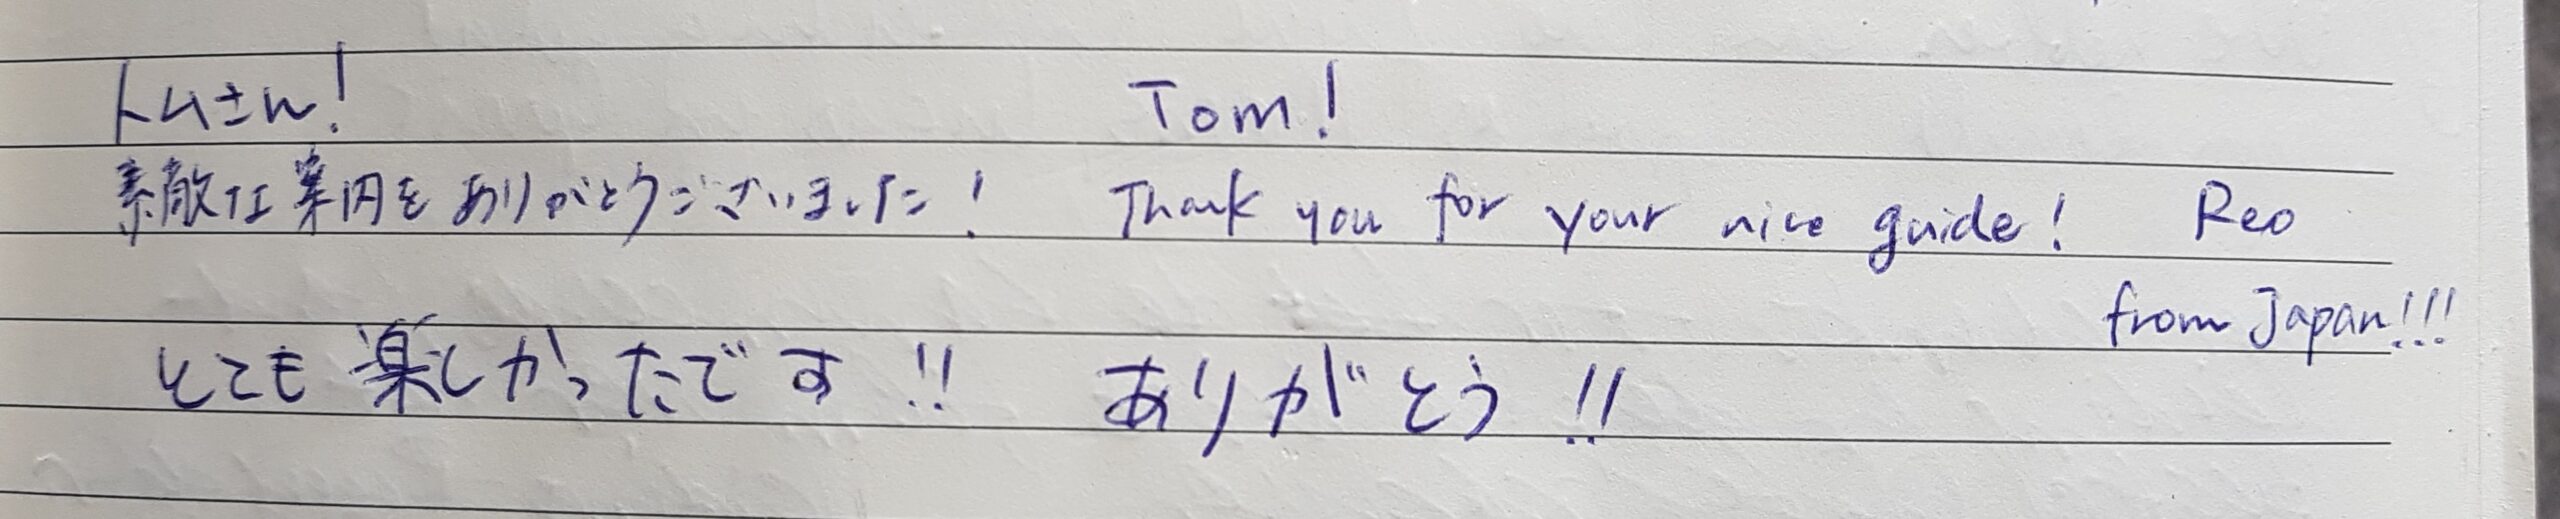 トムさん！
Tom!
素敵な案内をありがとうございました！
Thank you for your nice guide! Reo
from Japan!!!
とても楽しかったです!! ありがとう!!